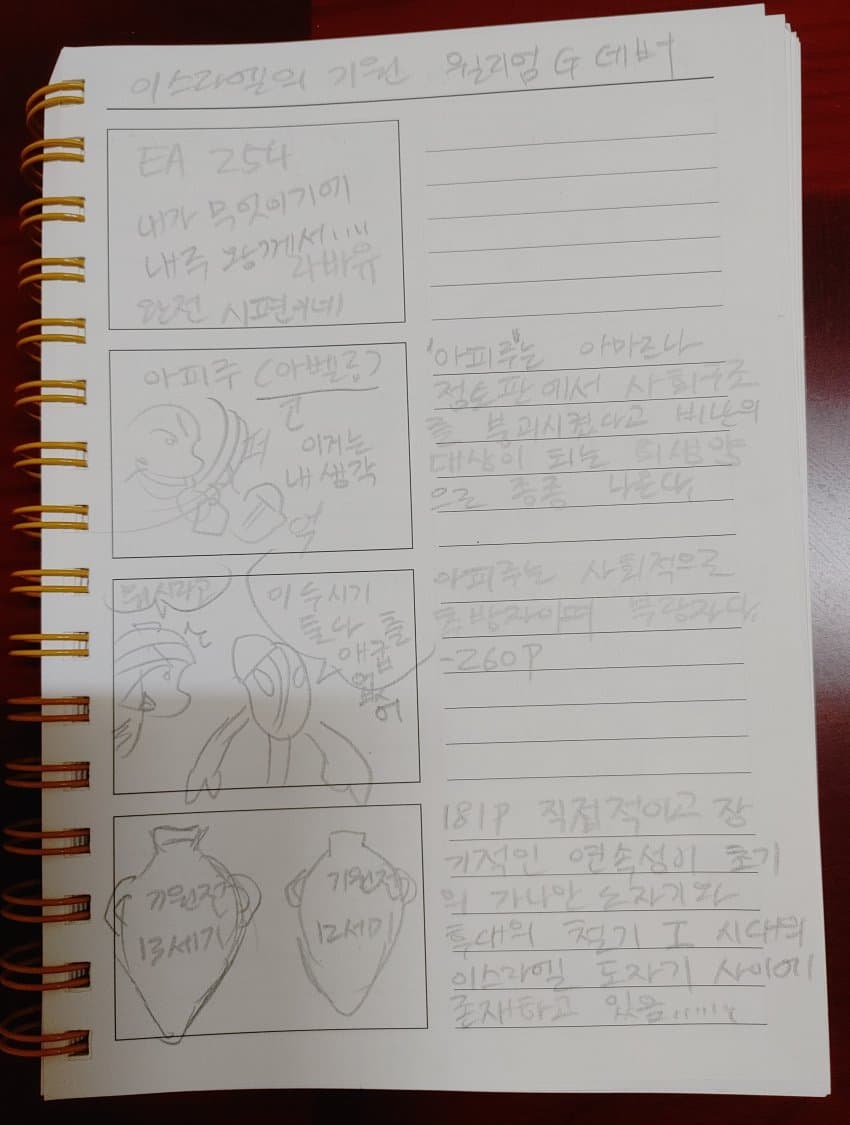 이스라엘의 기원 윌리엄 G 데버
EA 254
내가 무엇이기에
내 주 왕께서....
라바유
완전 시편이네
아피루 (아벨름)
이거는
내 생각
"아피루"는 아마르나
점토판에서 사회구조
를 붕괴시켰다고 비난의
대상이 되는 희생양
으로 종종 나온다.
이 두 시기
둘 다
아피루는 사회적으로
추방자이며 부랑자다.
-260P
기원전
13세기
기원전
12세기
181P 직접적이고 장
기적인 연속성이 초기
의 가나안 도자기와
후대의 철기 I 시대의
이스라엘 도자기 사이에
존재하고 있음......